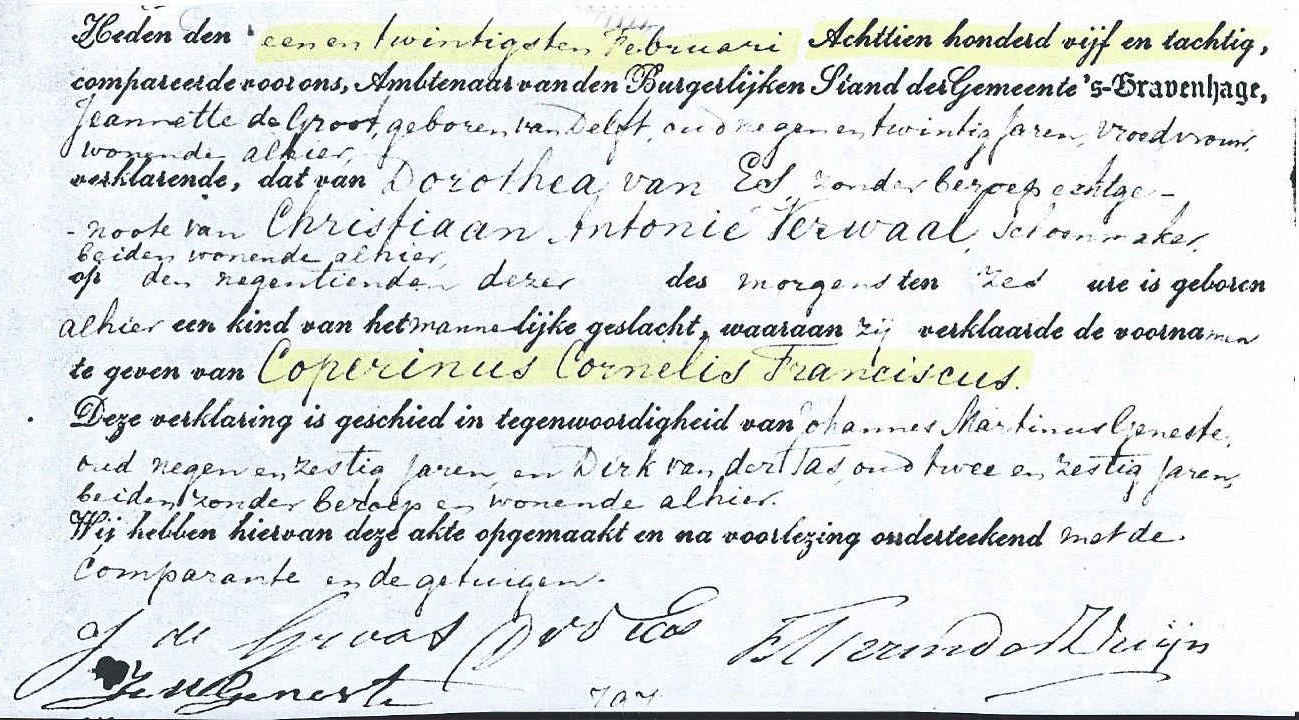 Heden den een en twintigsten Februari Achttien honderd vijf en tachtig,
compareerde voor ons, Ambtenaar van den Burgerlijken Stand der Gemeente 's-Gravenhage,
Jeannette de Groot, geboren van Delft, oud negen en twintig jaren, vroedvrouw,
wonende alhier,
verklarende, dat van Dorothea van Es, zonder beroep echtge-
-noote van Christiaan Antonie Verwaal, schoenmaker,
beiden wonende alhier,
op den negentienden dezer des morgens ten zes ure is geboren
alhier een kind van het mannelijke geslacht, waaraan zij verklaarde de voornamen
te geven van Coperinus Cornelis Franciscus.
Deze verklaring is geschied in tegenwoordigheid van Johannes Martinus Geneste,
oud negen en zestig jaren, en Dirk van der Tas, oud twee en zestig jaren,
beiden zonder beroep en wonende alhier.
Wij hebben hiervan deze akte opgemaakt en na voorlezing onderteekend met de
Comparante en de getuigen.
J de Groot